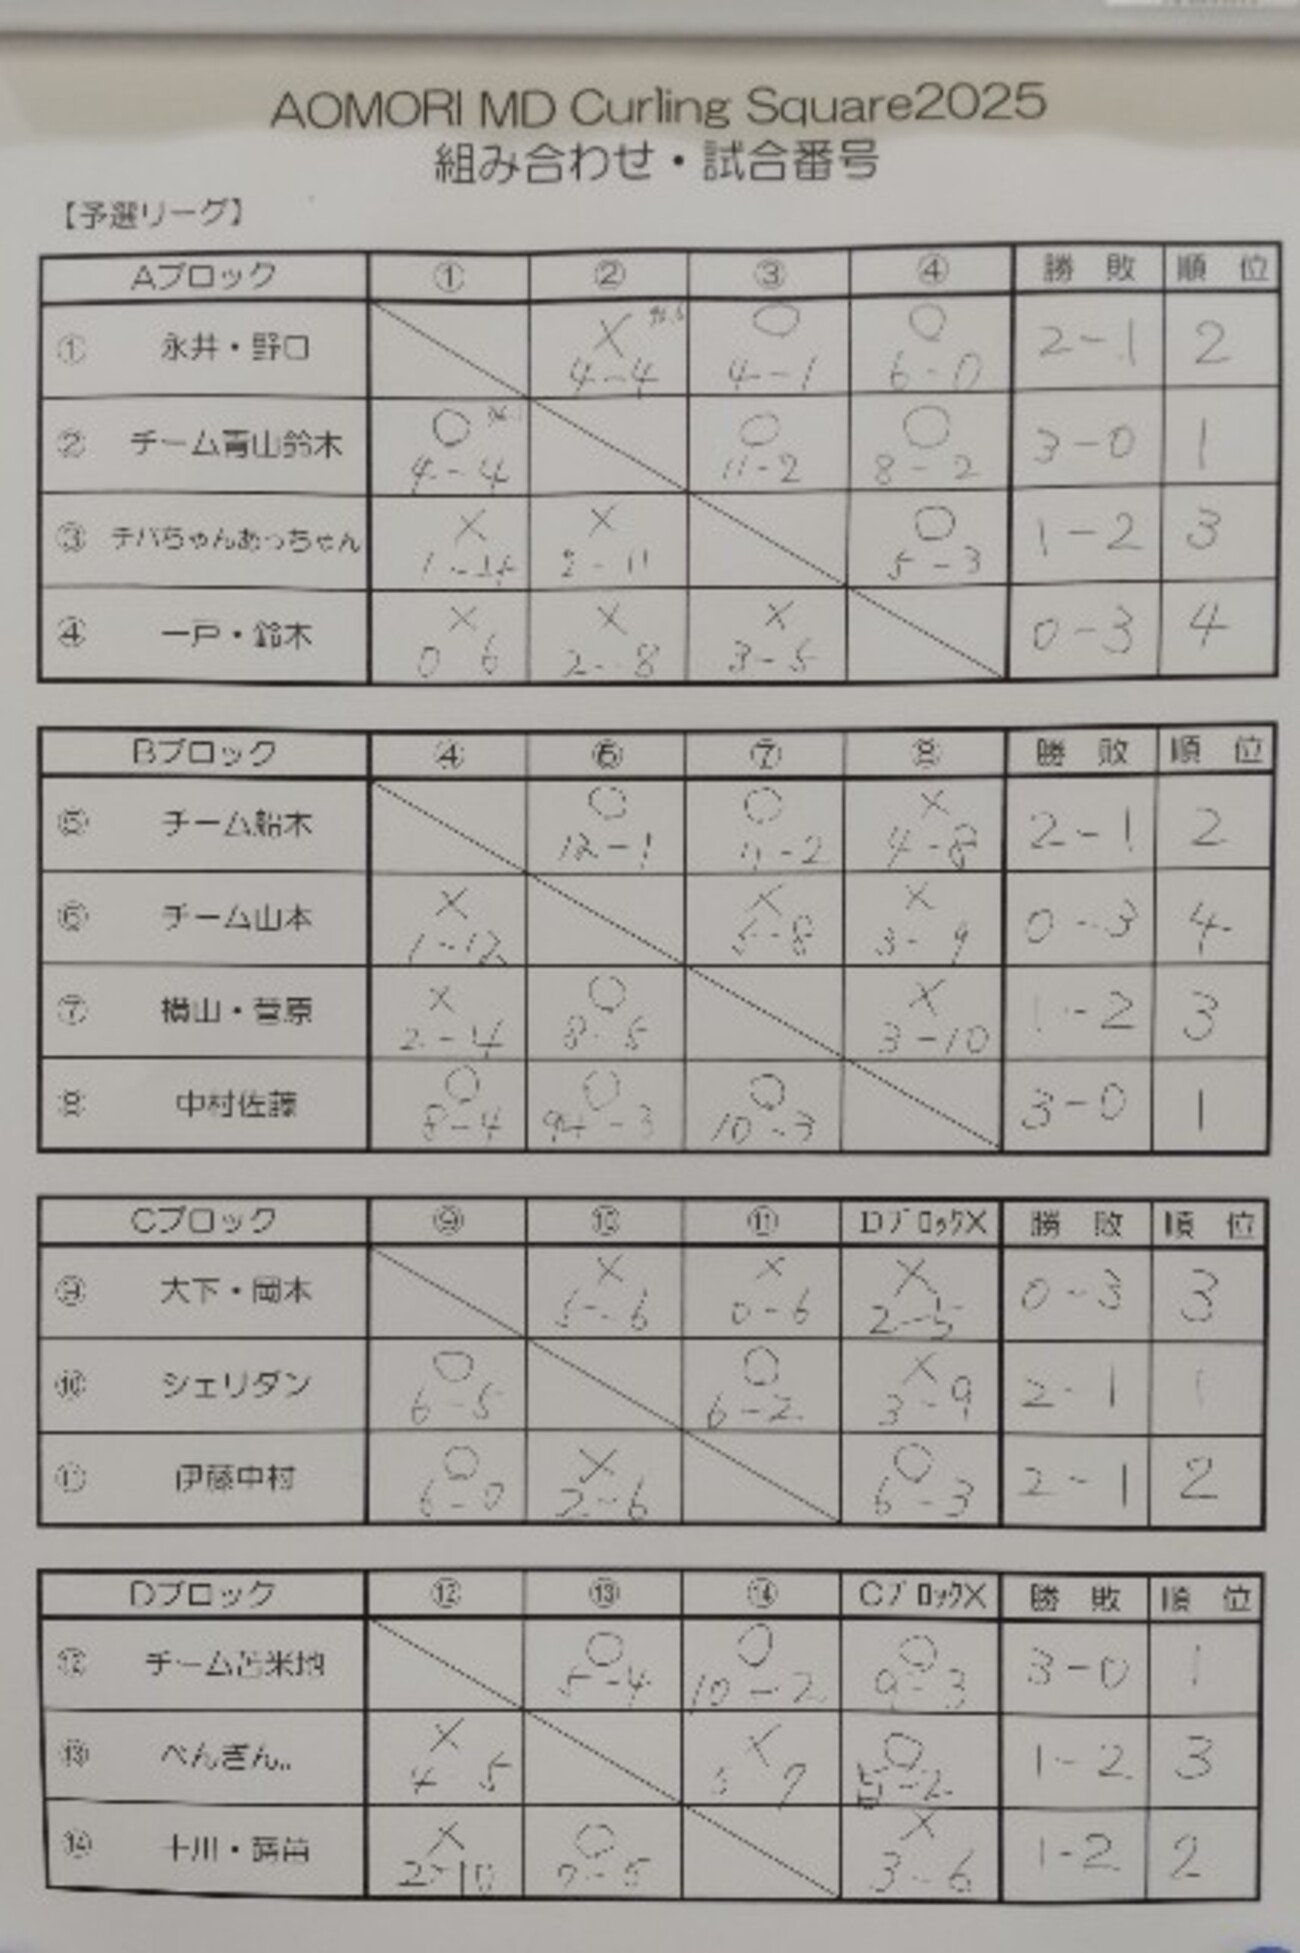 AOMORI MD Curling Square2025
組み合わせ・試合番号
【予選リーグ】
Aブロック ① ② ③ ④ 勝 敗 順 位
① 永井・野口 × 4-4 ○ 4-1 ○ 6-0 2-1 2
② チーム青山鈴木 ○ 4-4 ○ 11-2 ○ 8-2 3-0 1
③ チバちゃんあっちゃん × × 2-11 ○ 5-3 1-2 3
④ 一戸・鈴木 × 0 6 × 2-8 × 3-5 0-3 4
Bブロック ④ ⑥ ⑦ ⑧ 勝 敗 順 位
⑤ チーム船木 ○ 12-1 ○ 11-2 × 4-8 2-1 2
⑥ チーム山本 × 1-12 × 5-8 × 3-9 0-3 4
⑦ 横山・菅原 × ○ 8-5 × 3-10 1-2 3
⑧ 中村佐藤 ○ 8-4 ○ ○ 10-3 3-0 1
Cブロック ⑨ ⑩ ⑪ DブロックX 勝 敗 順 位
⑨ 大下・岡本 × 5-6 × 0-6 × 2-5 0-3 3
⑩ シェリダン ○ 6-5 ○ 6-2 × 3-9 2-1 1
⑪ 伊藤中村 ○ 6-0 × 2-6 ○ 6-3 2-1 2
Dブロック ⑫ ⑬ ⑭ CブロックX 勝 敗 順 位
⑫ チーム苫米地 ○ 5-4 ○ 10-2 ○ 9-3 3-0 1
⑬ ぺんぎん.. × 4 5 × ○ 5-2 1-2 3
⑭ × 2-10 ○ 7-5 × 3-6 1-2 2